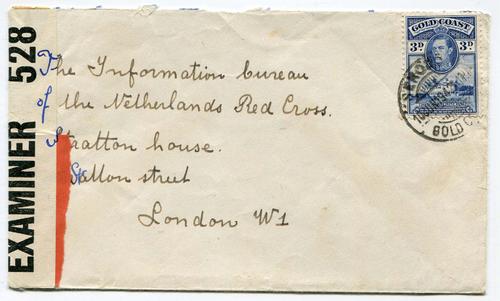 EXAMINER 528
GOLD COAST
3D 3D
The Information bureau
of the Netherlands Red Cross.
Stratton house.
Stratton street
London W1
GOLD